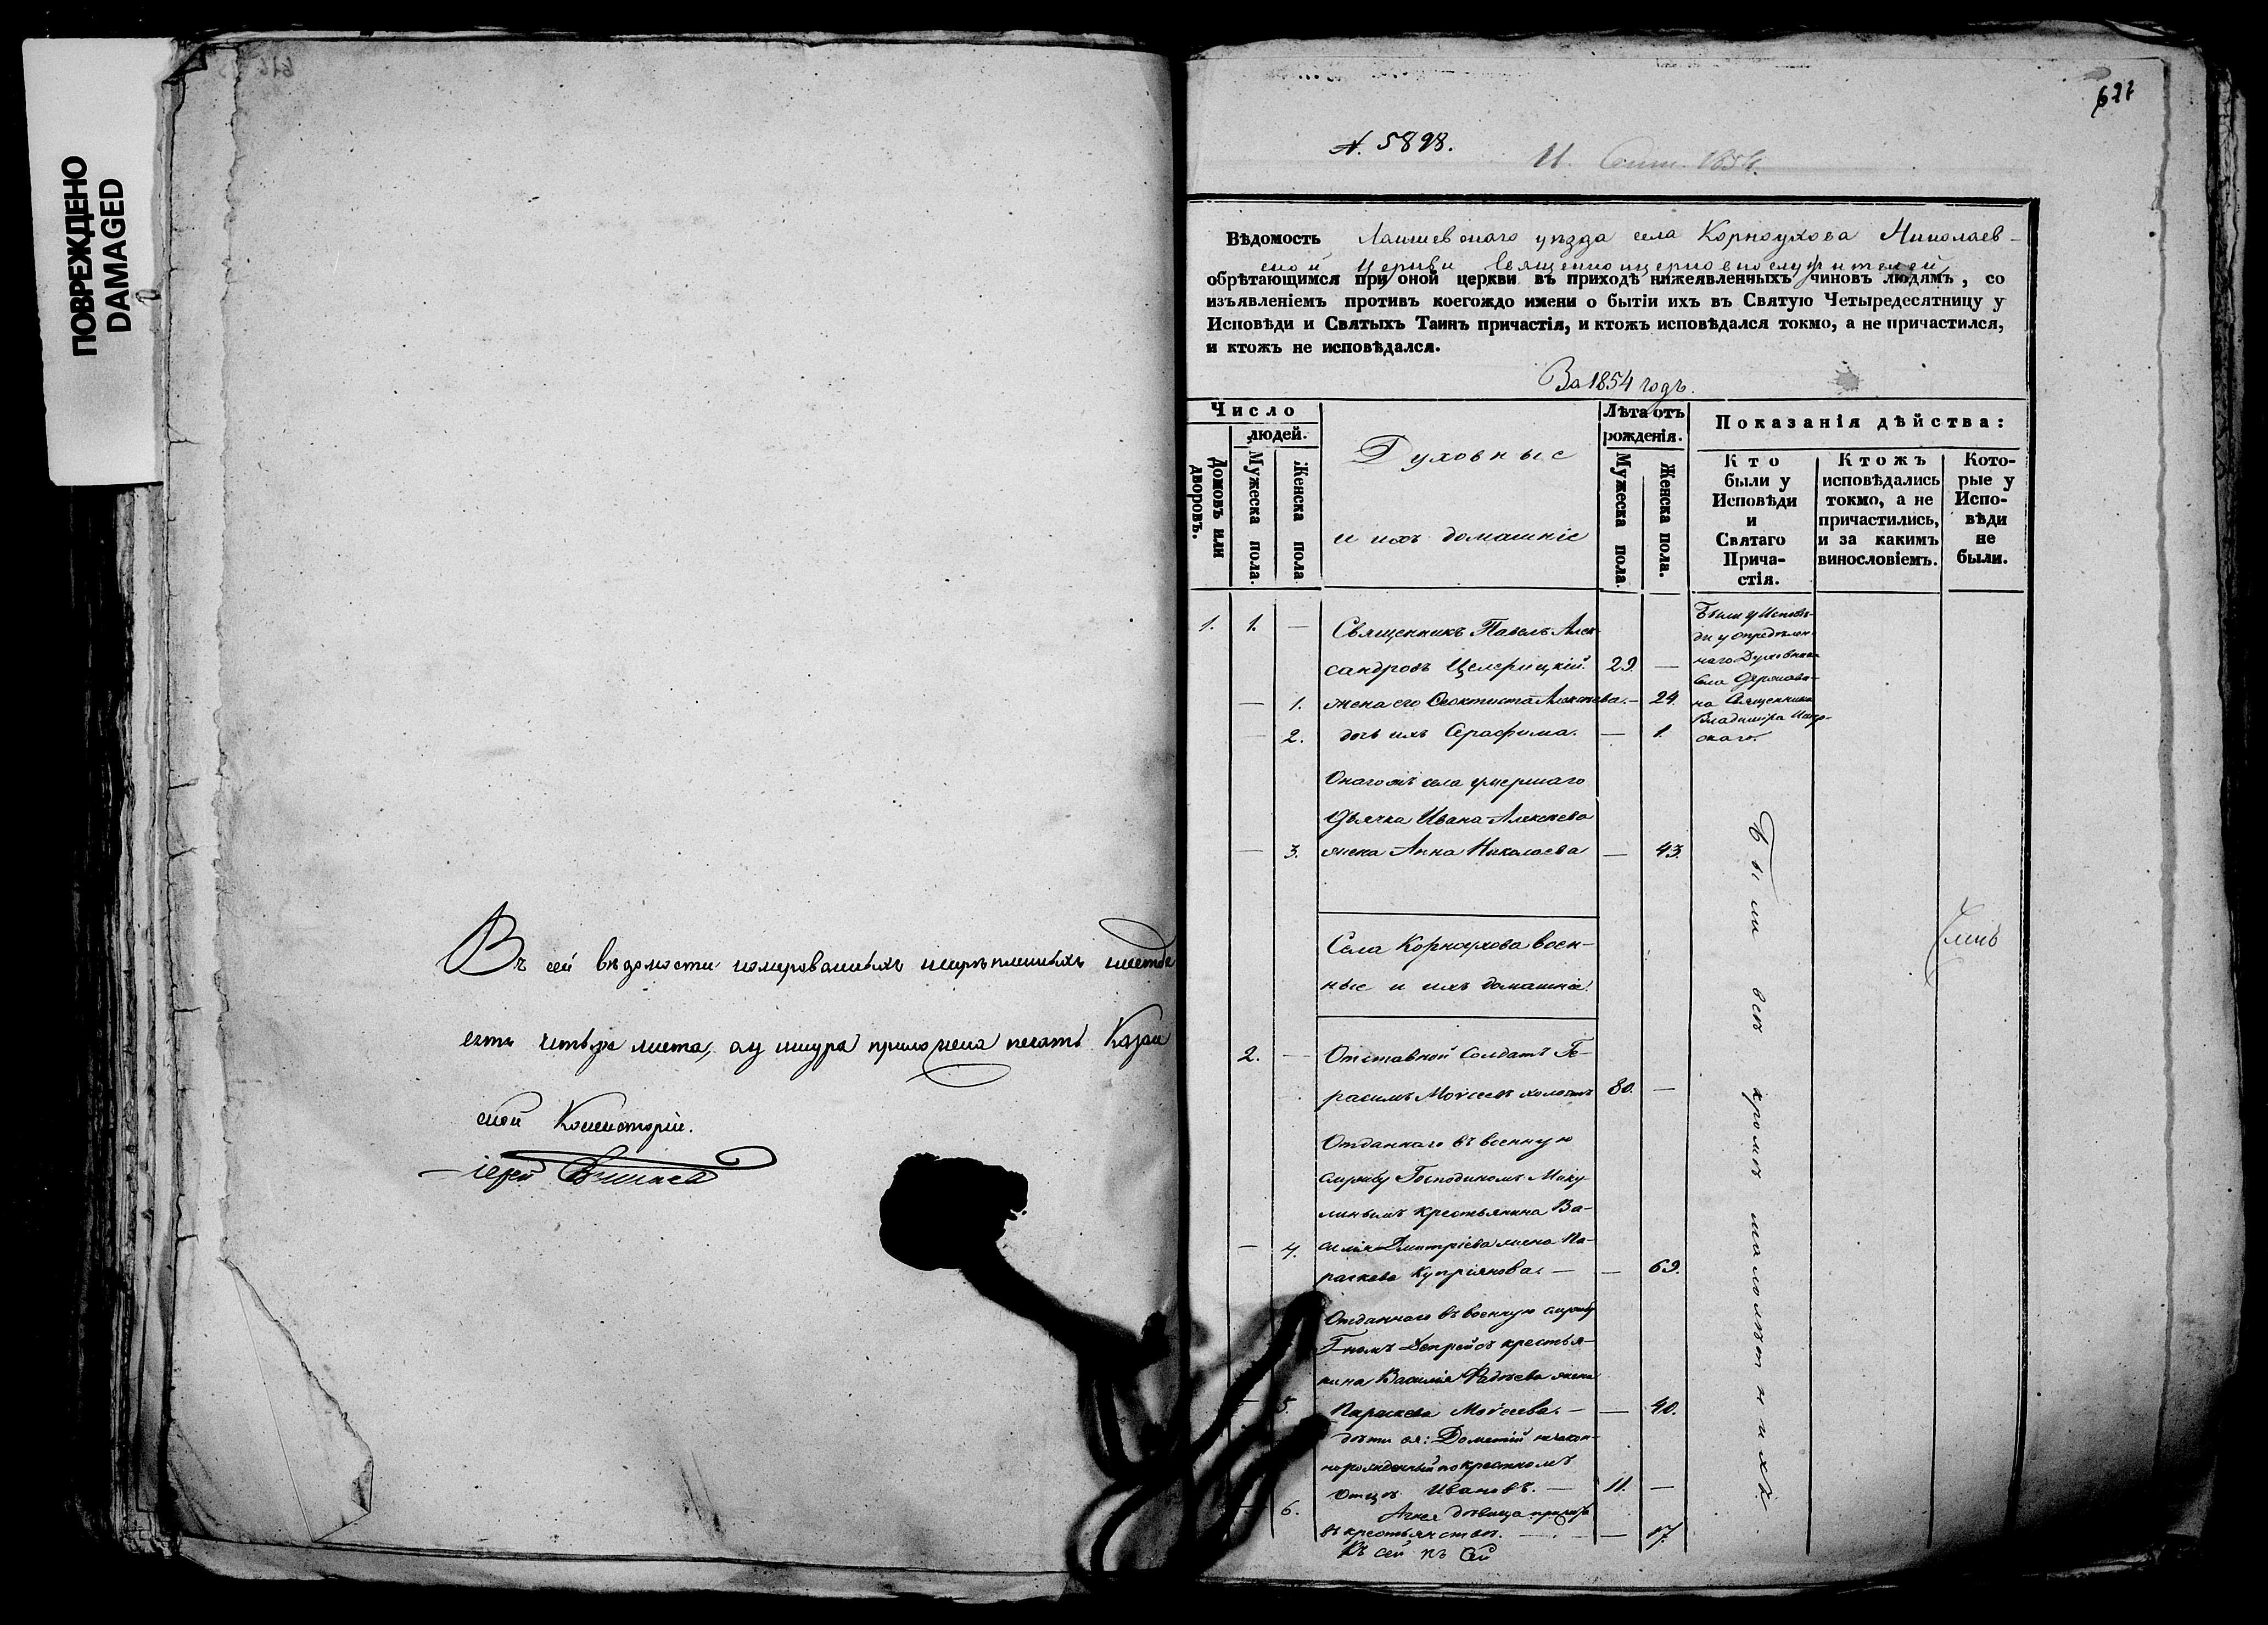 ПОВРЕЖДЕНО
DAMAGED
Въ сей вѣдомости
есть четыре листа, а у шнура приложена печать Казан
ской Консисторіи.
іерей
627
№. 5898.
1854.
Вѣдомость Лаишевскаго уѣзда села Корноухова Николаев-
ской Церкви Священноцерковнослужителей,
обрѣтающимся при оной церкви въ приходѣ нижеявленныхъ чиновъ людямъ, со
изъявленіемъ противъ коегождо имени о бытіи ихъ въ Святую Четыредесятницу у
Исповѣди и Святыхъ Таинъ причастія, и ктожъ исповѣдался токмо, а не причастился,
и ктожъ не исповѣдался.
За 1854 годъ.
Число
людей.
Домовъ или дворовъ.
Мужеска пола.
Женска пола
Духовные
и ихъ домашніе
Лѣта отъ
рожденія.
Мужеска пола.
Женска пола.
Показанія дѣйства:
Кто
были у
Исповѣди
и
Святаго
Прича-
стія.
Ктожъ
исповѣдались
токмо, а не
причастились,
и за какимъ
винословіемъ.
Кото-
рые у
Испо-
вѣди
не
были.
1. 1. — Священникъ Павелъ Алек-
сандровъ Целерицкій. 29. —
— 1. жена его Ѳеоктиста Алексѣева. — 24.
— 2. дочь ихъ Серафима. — 1.
Были у Исповѣ-
ди у опредѣлен-
наго Духовника
села
на Священника
Владиміра
скаго.
Онагожъ села умершаго
Дьячка Ивана Алексѣева
— 3. жена Анна Николаева — 43.
Села Корноухова воен-
ные и ихъ домашніе.
2. — Отставной Солдатъ Ге-
расимъ Моѵсеевъ холостъ 80. —
Отданнаго въ военную
службу Господиномъ Мику-
линымъ крестьянина Ва-
— 4. силія Дмитріева жена Па-
раскева Купріянова. — — 69.
Отданнаго въ военную службу
Г-номъ Депрейсъ крестья-
нина Василія Фадѣева жена
— 5. Параскева Моѵсеева. — — 40.
дѣти ея: Дометій незакон-
норожденный по крестномъ
отцѣ Ивановъ. — 11. —
— 6. Агнея дѣвица
въ крестьянствѣ. — — 17.
Къ сей
Были всѣ кромѣ малолѣтнихъ